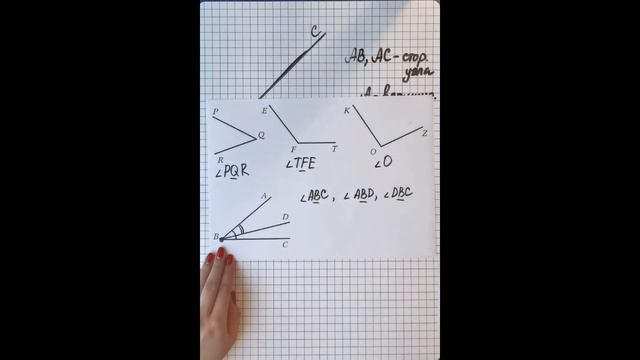 C
AB, AC – стор.
угла
P
Q
R
∠PQR
E
F
T
∠TFE
K
O
Z
∠O
∠ABC, ∠ABD, ∠DBC
A
D
B
C